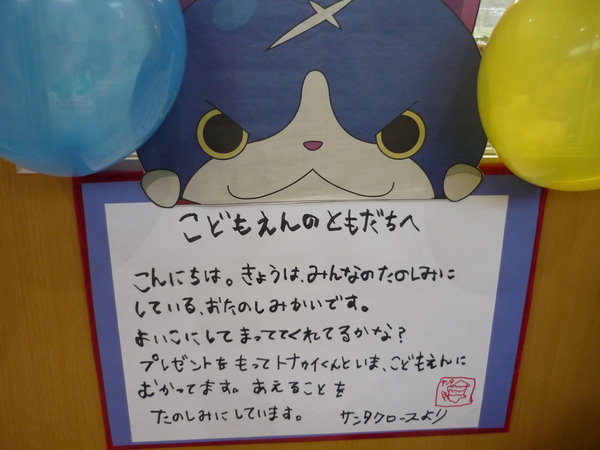 こどもえんのともだちへ
こんにちは。きょうは、みんなのたのしみに
している、おたのしみかいです。
よいこにしてまっててくれてるかな？
プレゼントをもってトナカイくんといま、こどもえんに
むかってます。あえることを
たのしみにしています。 サンタクロースより
サンタ